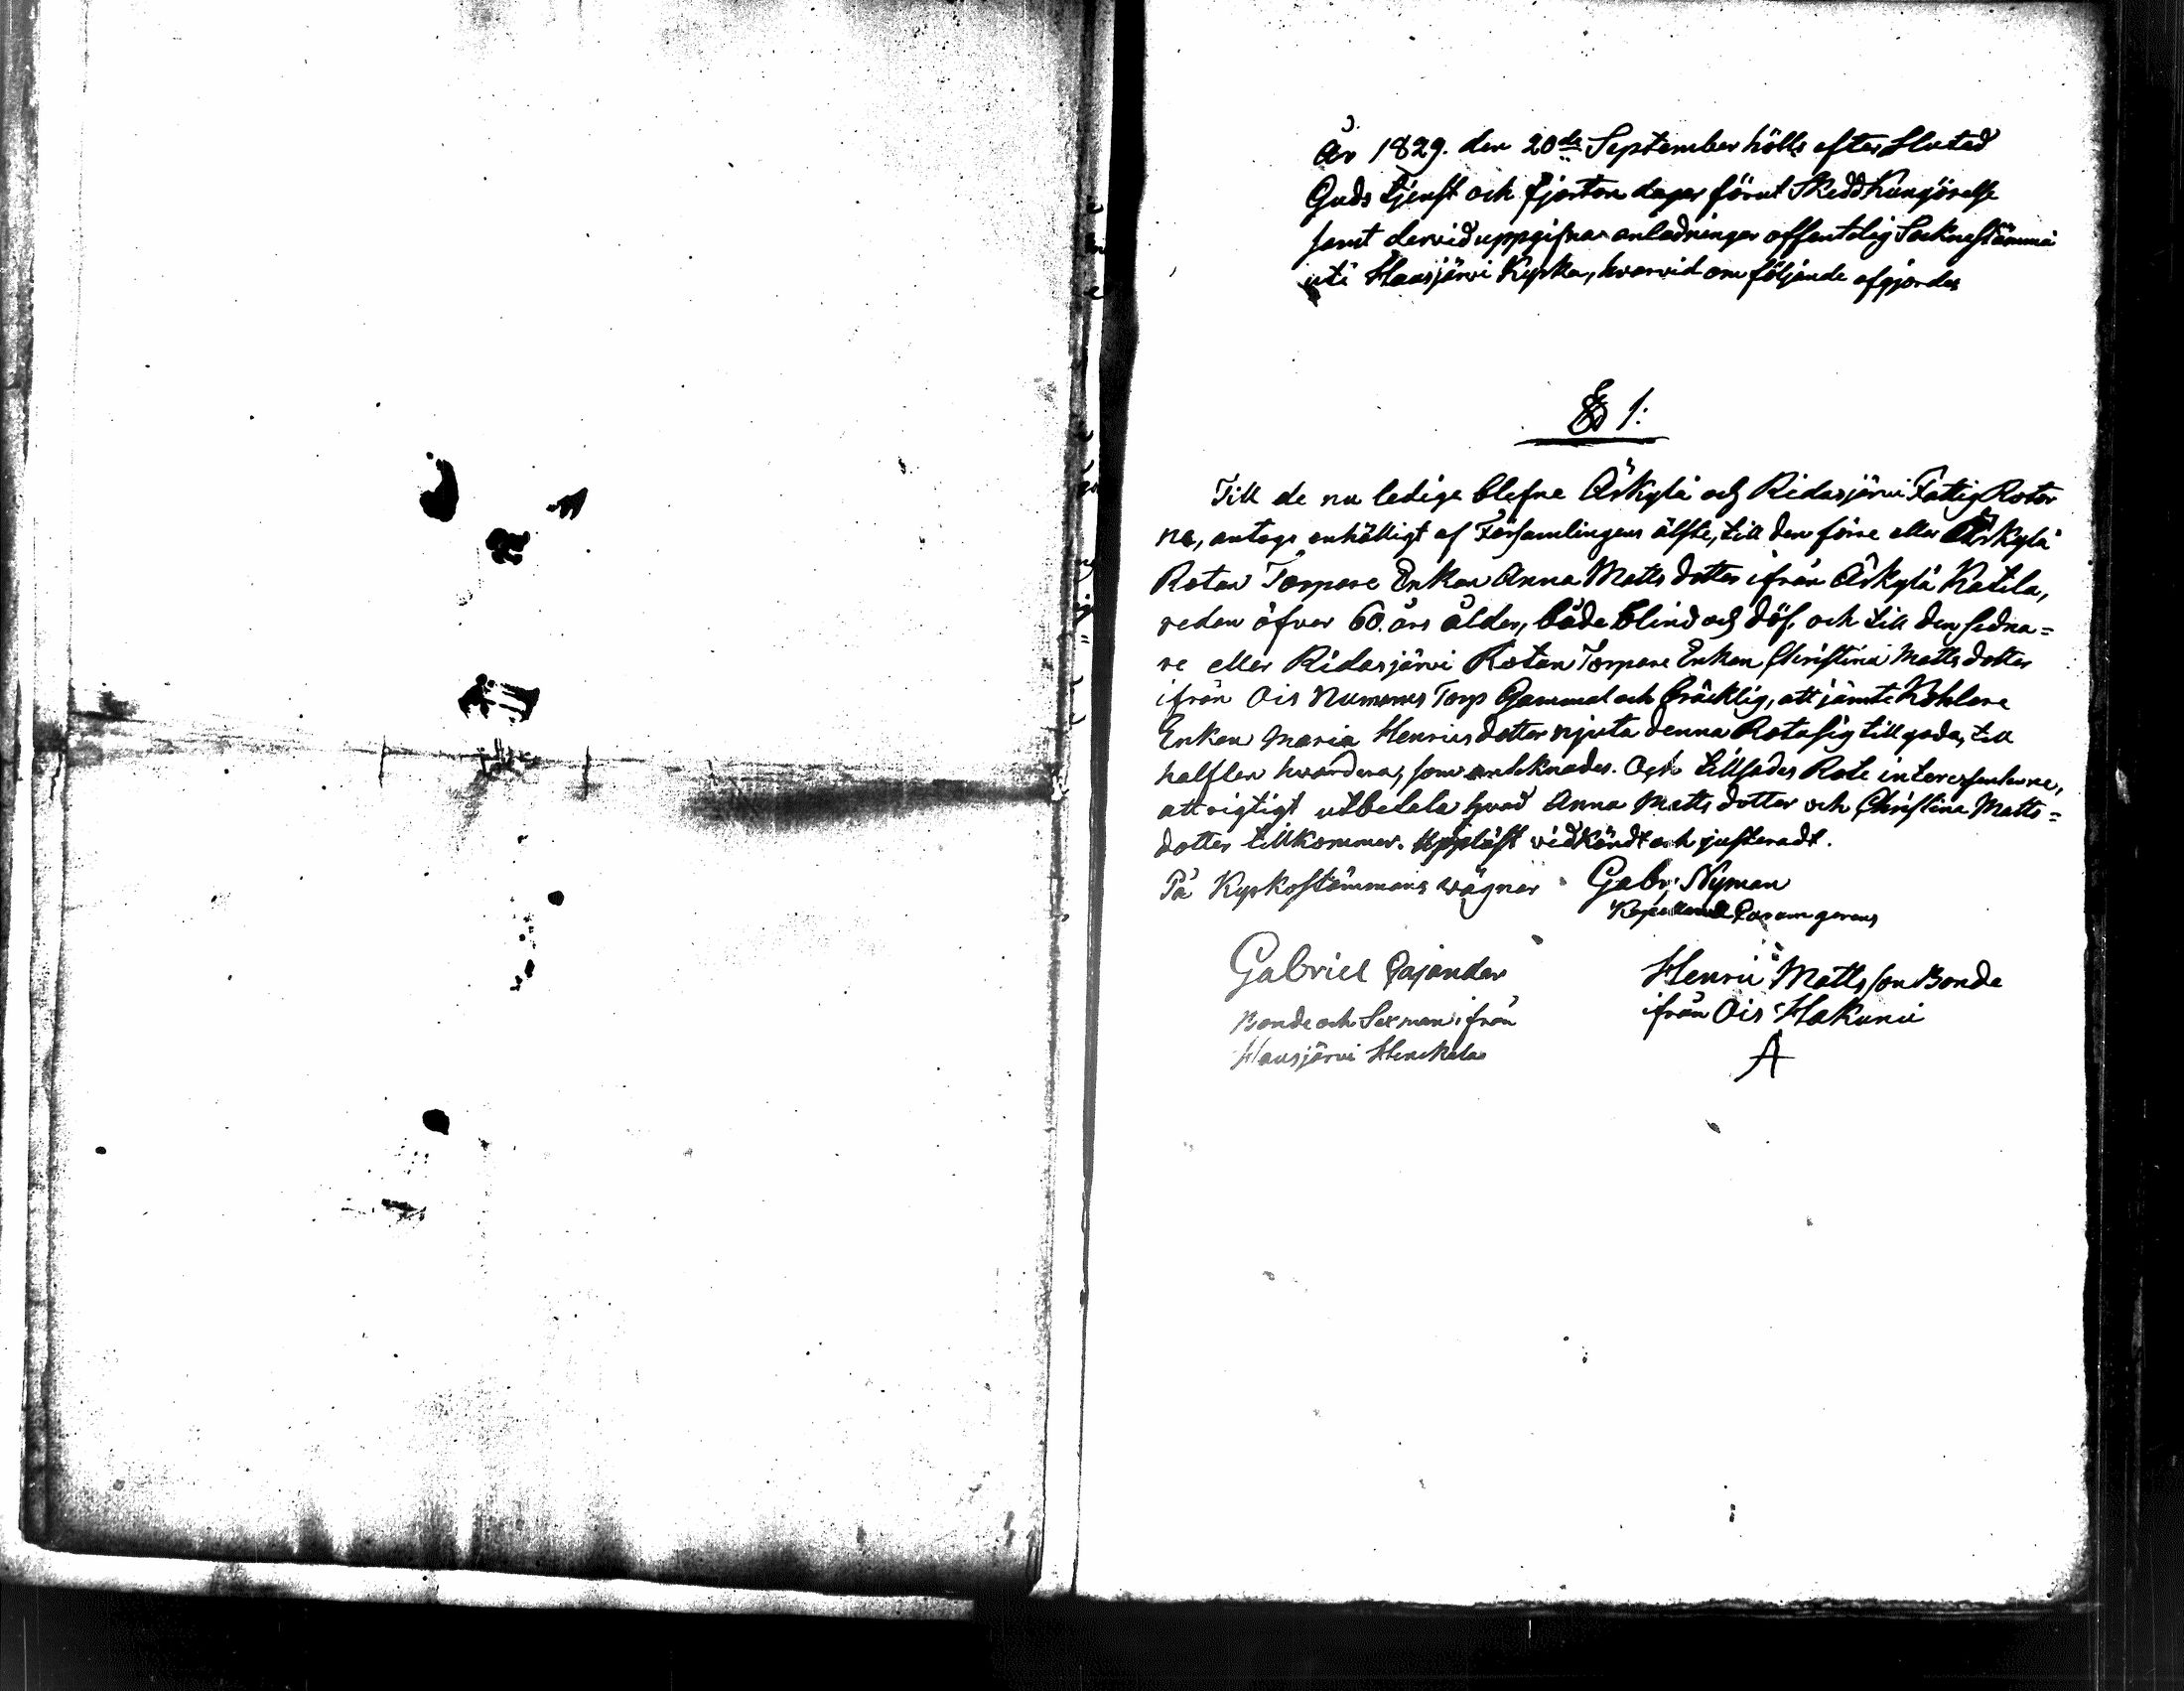 År 1829. den 20de September hölts efter Slutad
Guds tjenst och fjorton dagar förut Skedd Kungörelse
samt dervid uppgifna anledningar offentelig Sockne Stämma
uti Hausjärvi Kyrka, hvarvid om följande afgjordes
§ 1:
Till de nu ledige blefne Arkylä och Ridasjärvi Fattig Rotor
ne, antogs enhälligt af Församlingens älste, till den förre eller Arkylä
Rotan Torpare Enkan Anna Matts dotter ifrån Arkylä Katila,
redan öfver 60. års ålder, både blind och döf. och till den sedna=
re eller Ridasjärvi Rotan Torpare Enkan Christina Matts dotter
ifrån Ois Nummis Torp Gammal och bräcklig, att jämte Kohlare
Enkan Maria Henricsdotter njuta denna Rota sig till godo, till
halften hvardera, som anteknades. Och tillsades Rote interessenterne,
att rigtigt utbetala hvad Anna Matts dotter och Christina Matts=
dotter tillkommer. Uppläst vidkändt och justeradt.
På Kyrkostämmans wägnar Gabr. Nyman
Gabriel Pajander Henric Matts son Bonde
Bonde och Sexman ifrån ifrån Ois Hakuni
Hausjärvi Heickela A